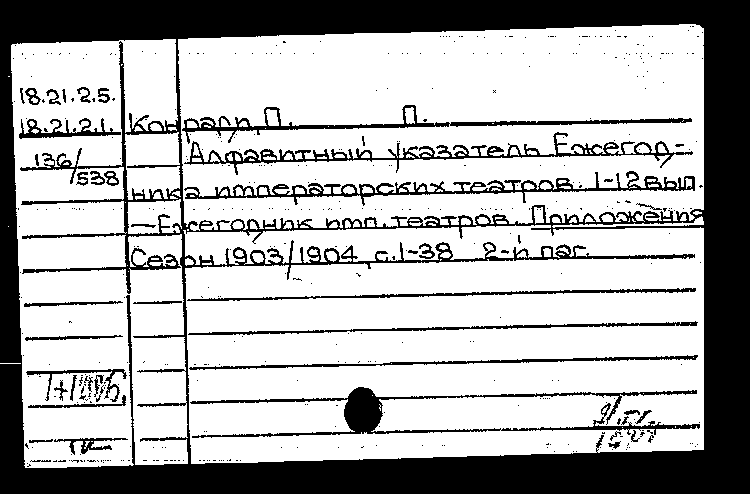 18.21.2.5.
18.21.2.1. Конради, П. П.
136/538 Алфавитный указатель Ежегод-
ника императорских театров. 1-12 вып.
— Ежегодник имп. театров. Приложения
Сезон 1903/1904, с. 1-38 2-й паг.